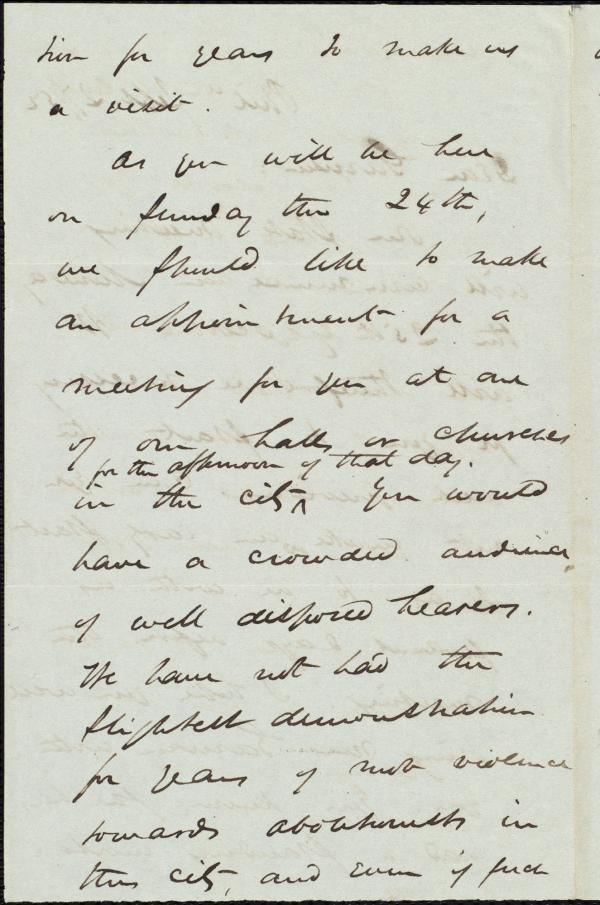 tion for years to make us
a visit.
As you will be here
on Sunday the 24th,
we should like to make
an appointment for a
meeting for you at one
of our halls or churches
for the afternoon of that day.
in the city ^ You would
have a crowded audience
of well disposed hearers.
We have not had the
slightest demonstration
for years of mob violence
towards abolitionists in
this city, and even if such